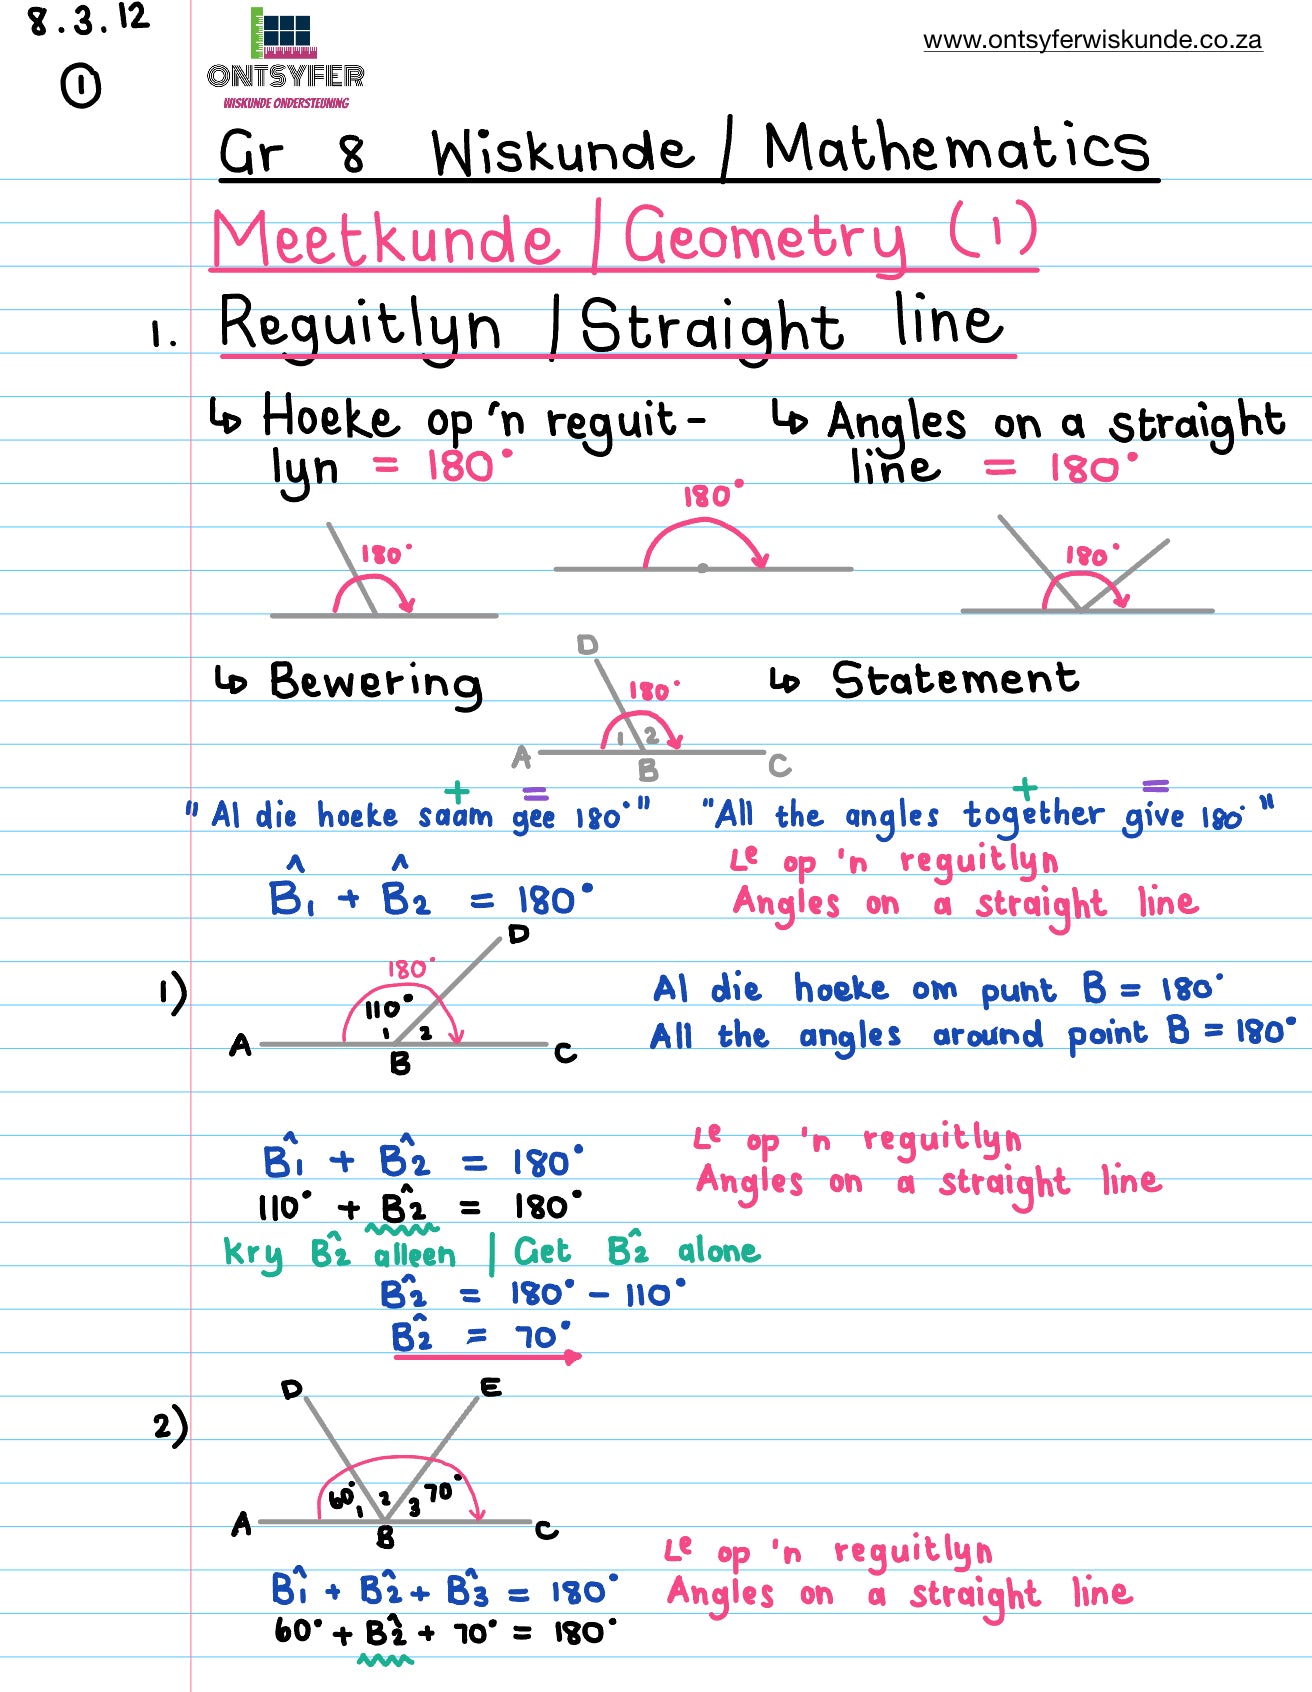 8.3.12
1
ONTSYFER
WISKUNDE ONDERSTEUNING
www.ontsyferwiskunde.co.za
Gr 8 Wiskunde / Mathematics
Meetkunde / Geometry (1)
1. Reguitlyn / Straight line
↳ Hoeke op 'n reguit-
lyn = 180°
↳ Angles on a straight
line = 180°
180°
180°
180°
↳ Bewering
↳ Statement
D
180°
1 2
A B C
+ =
"Al die hoeke saam gee 180°"
+ =
"All the angles together give 180°"
B̂1 + B̂2 = 180°
Le op 'n reguitlyn
Angles on a straight line
1)
D
180°
110°
1 2
A B C
Al die hoeke om punt B = 180°
All the angles around point B = 180°
B̂1 + B̂2 = 180°
Le op 'n reguitlyn
Angles on a straight line
110° + B̂2 = 180°
Kry B̂2 alleen | Get B̂2 alone
B̂2 = 180° - 110°
B̂2 = 70°
2)
D E
60° 1 2 3 70°
A B C
B̂1 + B̂2 + B̂3 = 180°
Le op 'n reguitlyn
Angles on a straight line
60° + B̂2 + 70° = 180°